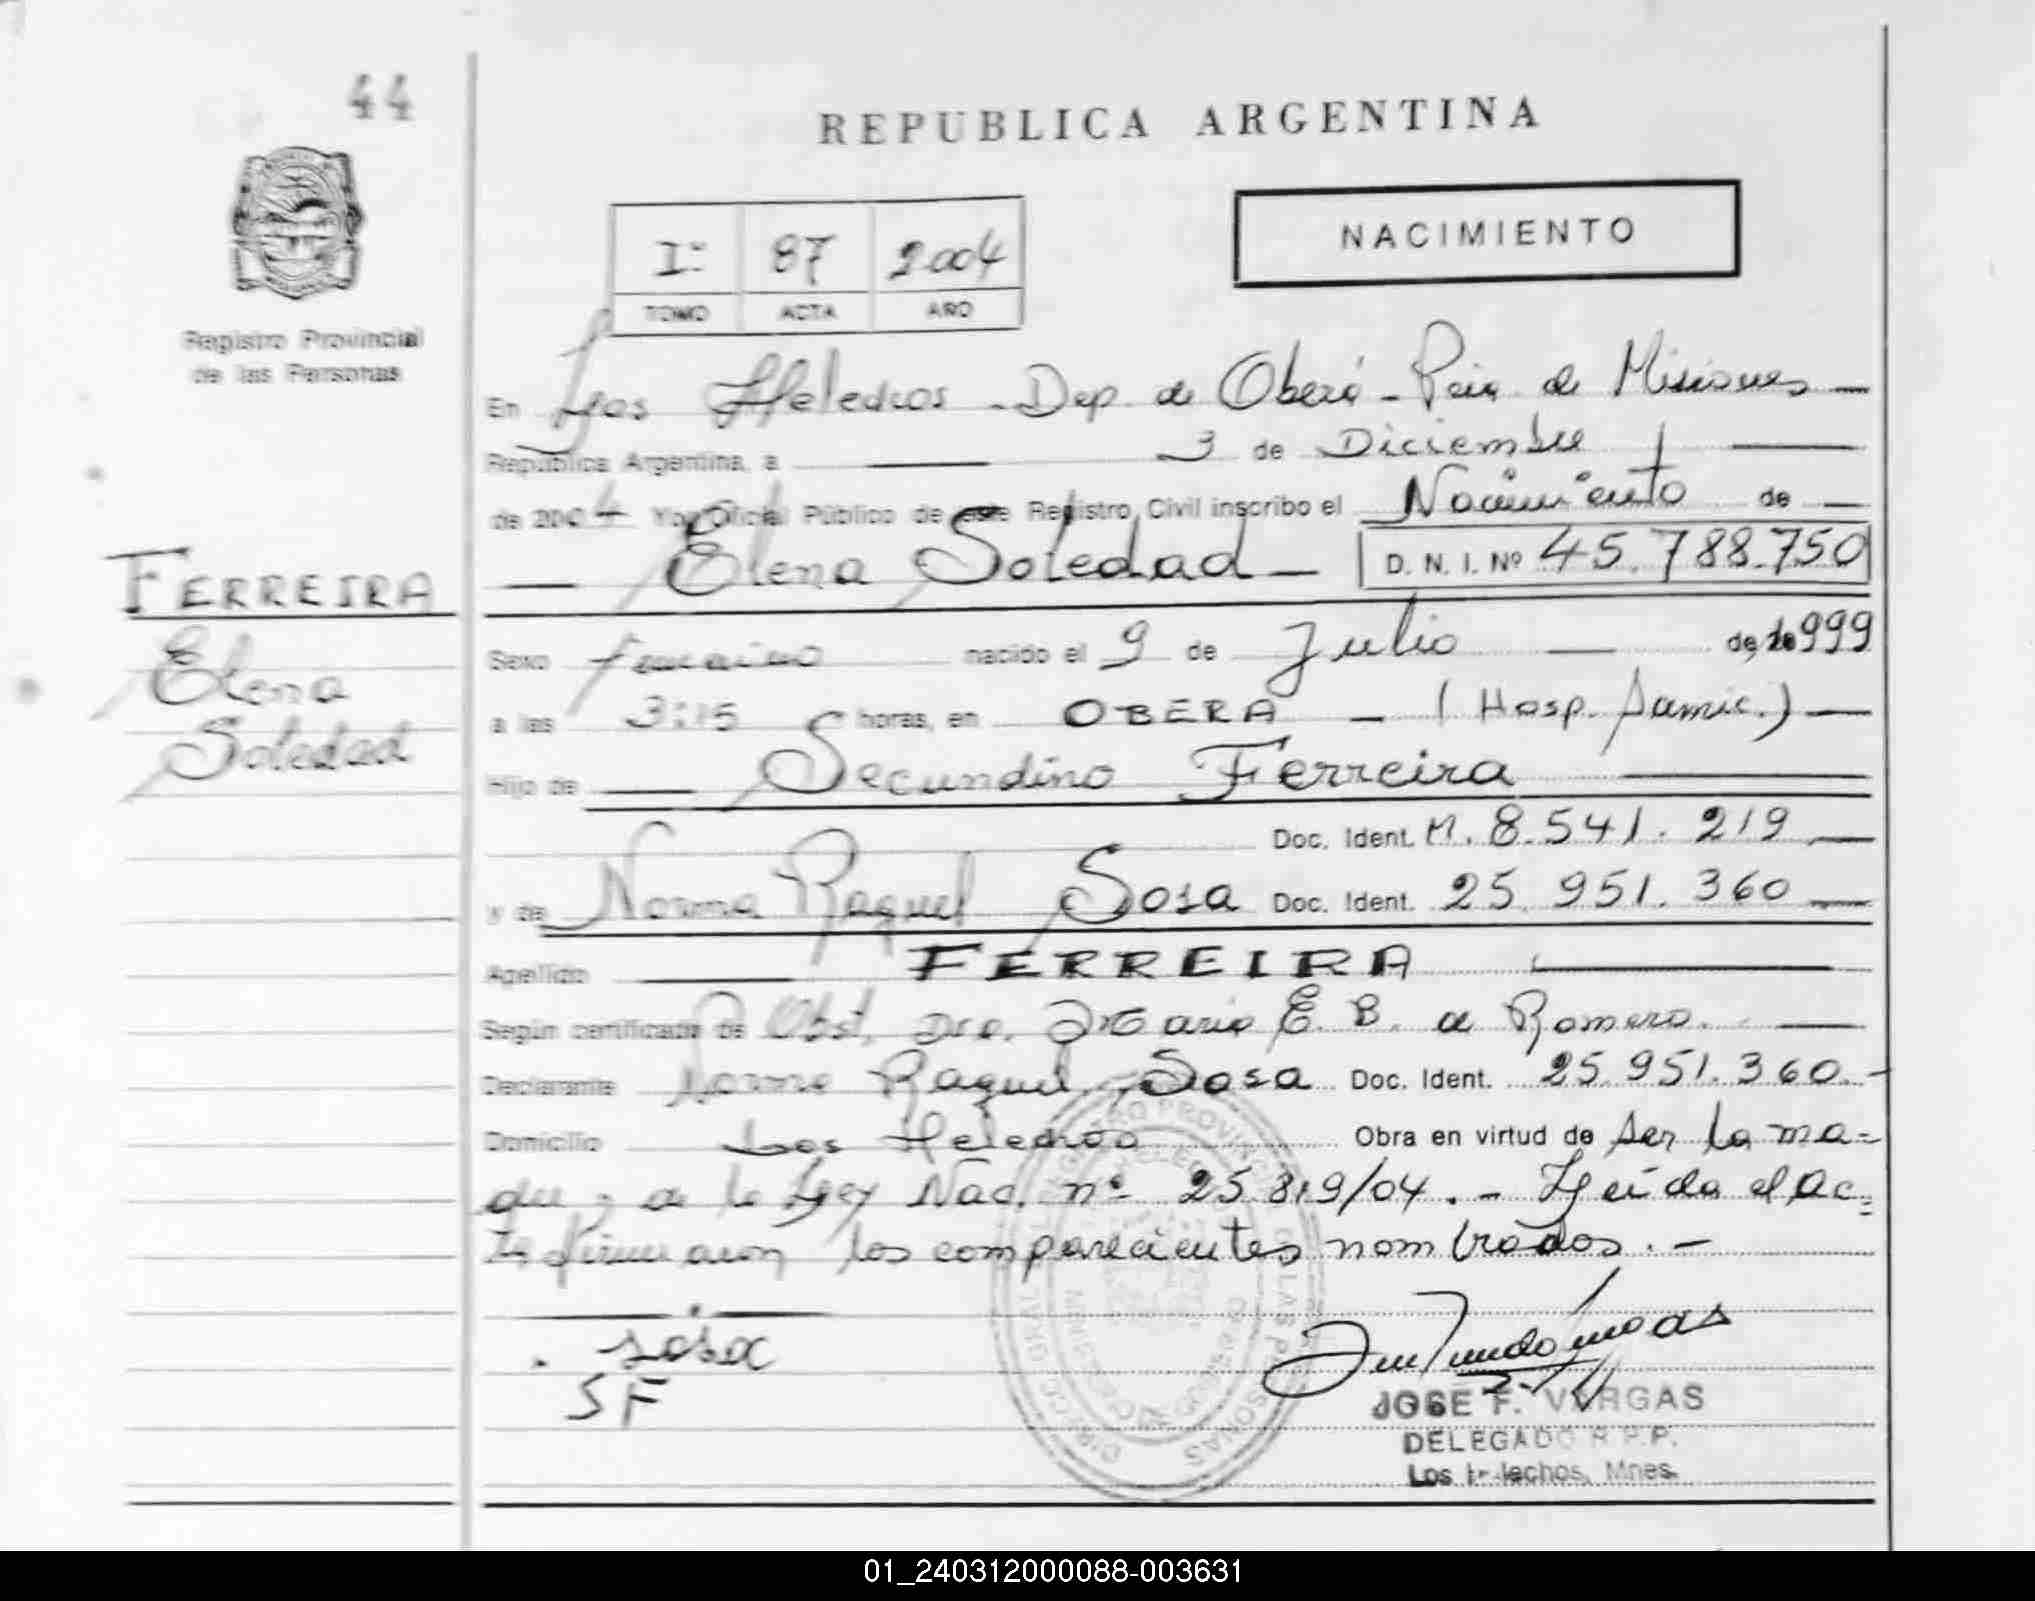 44
REPUBLICA ARGENTINA
NACIMIENTO
Iº 87 2004
TOMO ACTA AÑO
Registro Provincial
de las Personas
En Los Helechos - Dep. de Oberá - Pcia de Misiones
República Argentina, a 3 de Diciembre
de 2004 Yo, Oficial Público de este Registro Civil inscribo el Nacimiento de
Elena Soledad D. N. I. Nº 45.788.750
FERREIRA
Elena
Soledad
Sexo femenino nacido el 9 de Julio de 1999
a las 3:15 horas, en OBERA - (Hosp. Samic.)
Hijo de Secundino Ferreira
Doc. Ident. M. 8.541.219
y de Norma Raquel Sosa Doc. Ident. 25.951.360
Apellido FERREIRA
Según certificado de Obst. Dra. Maria E. B. de Romero.
Declarante Norma Raquel Sosa Doc. Ident. 25.951.360.-
Domicilio Los Helechos Obra en virtud de ser la ma-
dre y de la Ley Nac. nº 25.819/04.- Leída el Ac-
ta firmaron los comparecientes nombrados.-
sosa
SF
JOSE F. VARGAS
DELEGADO R.P.P.
Los Helechos, Mnes.
01_240312000088-003631